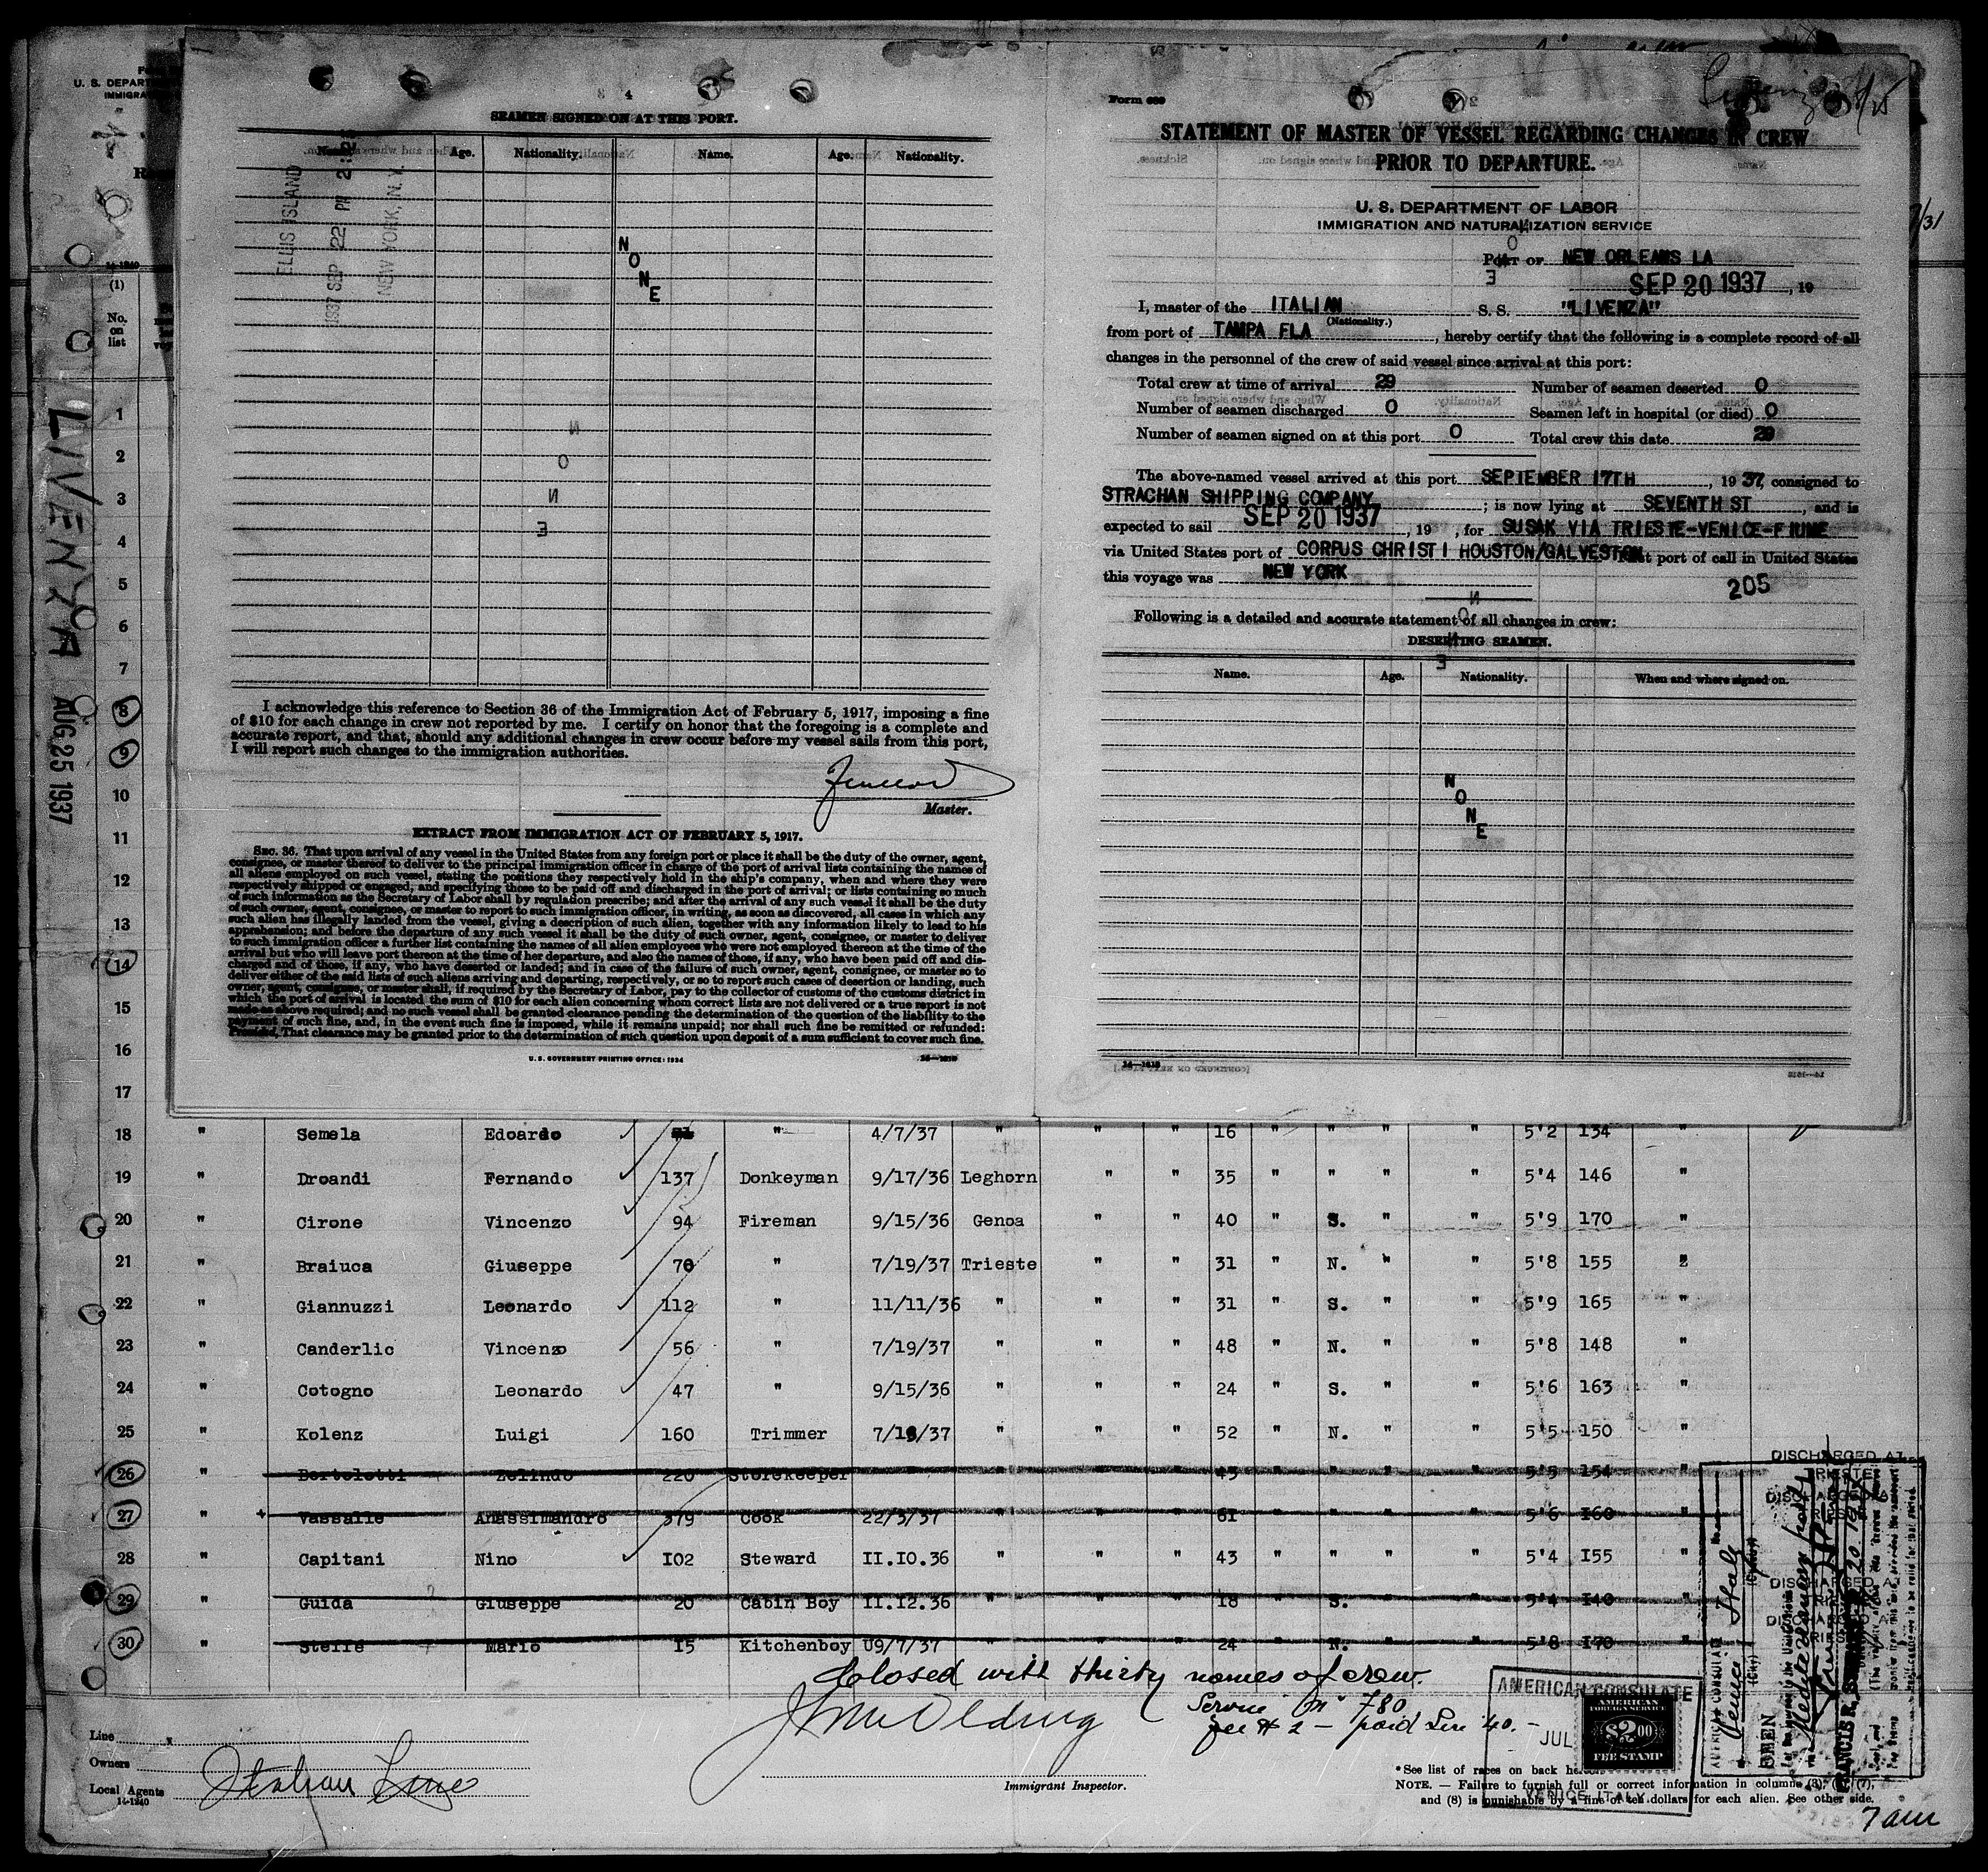 U. S. DEPART
IMMIGRA
14-1240
(1)
No.
on
list
LIVENZA
AUG 25 1937
1
2
3
4
5
6
7
8
9
10
11
12
13
14
15
16
17
4
SEAMEN SIGNED ON AT THIS PORT.
Name. Age. Nationality. Name. Age. Nationality.
ELLIS ISLAND
1937 SEP 22 PM 2:2
NEW YORK, N.Y.
N
O
N
E
I acknowledge this reference to Section 36 of the Immigration Act of February 5, 1917, imposing a fine
of $10 for each change in crew not reported by me. I certify on honor that the foregoing is a complete and
accurate report, and that, should any additional changes in crew occur before my vessel sails from this port,
I will report such changes to the immigration authorities.
Master.
EXTRACT FROM IMMIGRATION ACT OF FEBRUARY 5, 1917.
SEC. 36. That upon arrival of any vessel in the United States from any foreign port or place it shall be the duty of the owner, agent,
consignee, or master thereof to deliver to the principal immigration officer in charge of the port of arrival lists containing the names of
all aliens employed on such vessel, stating the positions they respectively hold in the ship's company, when and where they were
respectively shipped or engaged, and specifying those to be paid off and discharged in the port of arrival; or lists containing so much
of such information as the Secretary of Labor shall by regulation prescribe; and after the arrival of any such vessel it shall be the duty
of such owner, agent, consignee, or master to report to such immigration officer, in writing, as soon as discovered, all cases in which any
such alien has illegally landed from the vessel, giving a description of such alien, together with any information likely to lead to his
apprehension; and before the departure of any such vessel it shall be the duty of such owner, agent, consignee, or master to deliver
to such immigration officer a further list containing the names of all alien employees who were not employed thereon at the time of the
arrival but who will leave port thereon at the time of her departure, and also the names of those, if any, who have been paid off and dis-
charged and of those, if any, who have deserted or landed; and in case of the failure of such owner, agent, consignee, or master so to
deliver either of the said lists of such aliens arriving and departing, respectively, or so to report such cases of desertion or landing, such
owner, agent, consignee, or master shall, if required by the Secretary of Labor, pay to the collector of customs of the customs district in
which the port of arrival is located the sum of $10 for each alien concerning whom correct lists are not delivered or a true report is not
made as above required; and no such vessel shall be granted clearance pending the determination of the question of the liability to the
payment of such fine, and, in the event such fine is imposed, while it remains unpaid; nor shall such fine be remitted or refunded:
Provided, That clearance may be granted prior to the determination of such question upon deposit of a sum sufficient to cover such fine.
U. S. GOVERNMENT PRINTING OFFICE: 1934
Form 689
STATEMENT OF MASTER OF VESSEL REGARDING CHANGES IN CREW
PRIOR TO DEPARTURE.
U. S. DEPARTMENT OF LABOR
IMMIGRATION AND NATURALIZATION SERVICE
PORT OF NEW ORLEANS LA
SEP 20 1937, 19
I, master of the ITALIAN S. S. "LIVENZA"
(Nationality.)
from port of TAMPA FLA, hereby certify that the following is a complete record of all
changes in the personnel of the crew of said vessel since arrival at this port:
Total crew at time of arrival 29 Number of seamen deserted 0
Number of seamen discharged 0 Seamen left in hospital (or died) 0
Number of seamen signed on at this port 0 Total crew this date 29
The above-named vessel arrived at this port SEPTEMBER 17TH, 1937, consigned to
STRACHAN SHIPPING COMPANY; is now lying at SEVENTH ST, and is
expected to sail SEP 20 1937, 19 , for SUSAK VIA TRIESTE-VENICE-FIUME
via United States port of CORPUS CHRISTI HOUSTON/GALVESTON port of call in United States
this voyage was NEW YORK
205
Following is a detailed and accurate statement of all changes in crew:
DESERTING SEAMEN.
Name. Age. Nationality. When and where signed on.
N
O
N
E
18 " Semela Edoardo " 4/7/37 " " " 16 " " " " 5'2 134 "
19 " Droandi Fernando 137 Donkeyman 9/17/36 Leghorn " " 35 " " " " 5'4 146 "
20 " Cirone Vincenzo 94 Fireman 9/15/36 Genoa " " 40 " S. " " 5'9 170 "
21 " Braiuca Giuseppe 70 " 7/19/37 Trieste " " 31 " N. " " 5'8 155 "
22 " Giannuzzi Leonardo 112 " 11/11/36 " " " 31 " S. " " 5'9 165 "
23 " Canderlic Vincenzo 56 " 7/19/37 " " " 48 " N. " " 5'8 148 "
24 " Cotogno Leonardo 47 " 9/15/36 " " " 24 " S. " " 5'6 163 "
25 " Kolenz Luigi 160 Trimmer 7/19/37 " " " 52 " N. " " 5'5 150 "
26 " Bortolotti Zelindo 220 Storekeeper " " " " 45 " " " " 5'5 154 "
27 " Vassalle Anassimandro 379 Cook 22/3/37 " " " 61 " " " " 5'6 I60 "
28 " Capitani Nino I02 Steward II.10.36 " " " 43 " " " " 5'4 I55 "
29 " Guida Giuseppe 20 Cabin Boy II.12.36 " " " 18 " S. " " 5'4 I40 "
30 " Steffe Mario I5 Kitchenboy 09/7/37 " " " 24 " N. " " 5'8 I70 "
Closed with thirty names of crew.
Service No 780
fee # 2 - paid Lire 40.-
Line
Owners
Local Agents
14-1240
Italian Line
Immigrant Inspector.
AMERICAN CONSULATE
JUL
VENICE, ITALY.
AMERICAN
FOREIGN SERVICE
$2.00
FEE STAMP
DISCHARGED AT
TRIESTE
AMERICAN CONSULATE
Venice Italy
SEEN
*See list of races on back hereof.
NOTE. — Failure to furnish full or correct information in columns (3), (6), (7),
and (8) is punishable by a fine of ten dollars for each alien. See other side.
7 am